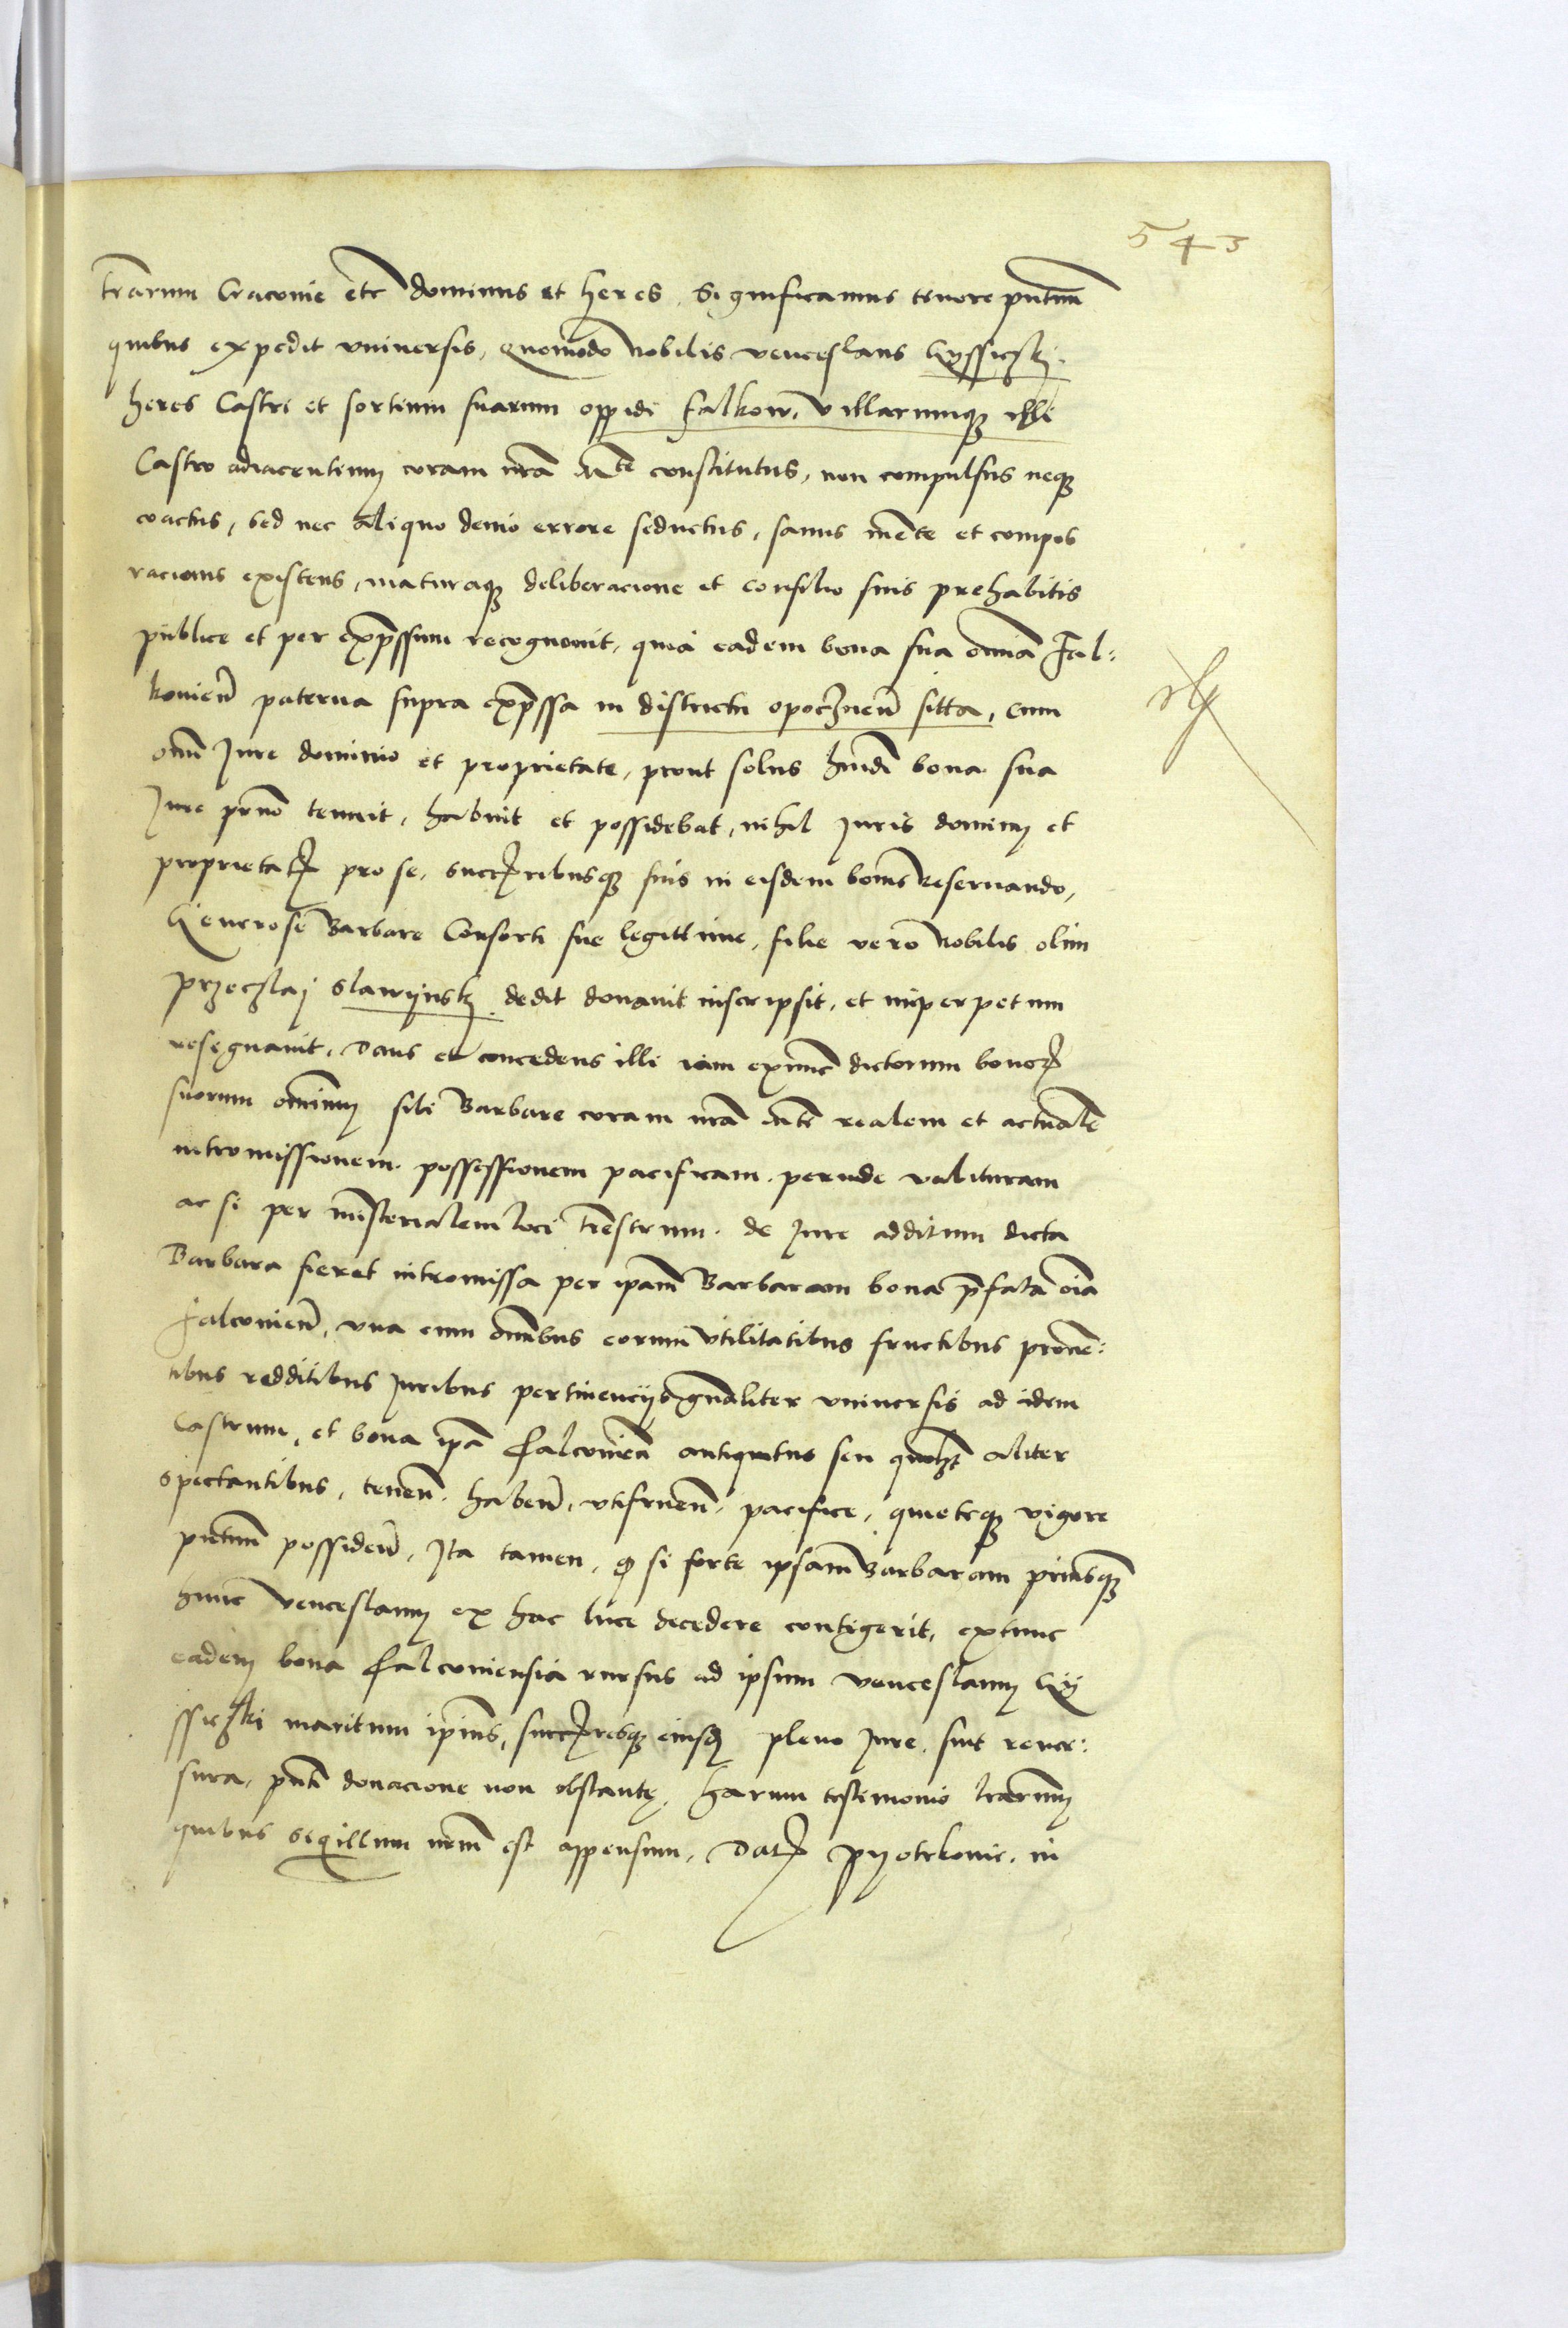 543
trarum Cracovie etc dominus et heres. Significamus tenore pntium
quibus expedit universis, Quomodo Nobilis venceslaus Gyssiczky.
heres Castri et sortium suarum oppidi Falkow, villarumque illi
Castro adiacentium coram nra Mte constitutus, non compulsus neque
coactus, sed nec aliquo devio errore seductus, sanus mente et compos
racionis existens, maturaque deliberacione et consilio suis prehabitis
publice et per expressum recognovit, quia eadem bona sua omnia Fal:
kovien paterna supra expressa in districtu opocznen sitta, cum
omni Jure dominio et proprietate, prout solus huiusmodi bona sua
Jure prno tenuit, habuit et possidebat, nihil Juris dominy et
proprietatis pro se, succribusque suis in eisdem bonis reservando,
Generose Barbare Consorti sue legittime, filie vero Nobilis olim
przeczlaj Slawijnsky dedit donavit inscripsit, et imperpetuum
resignavit, Dans et concedens illi iam exnunc dictorum bonorum
suorum omnium sibi Barbare coram nra Mte realem et actualem
intromissionem. possessionem pacificam. perinde valituram
ac si per ministerialem loci trestrum. de Jure additum dicta
Barbara fieret intromissa per ipam Barbaram bona prefata oia
falcovien, una cum omnibus eorum utilitatibus fructibus proven:
tibus redditibus Juribus pertinencijs gnaliter universis ad idem
Castrum, et bona ipa falcovien antiquitus seu quolzt aliter
spectantibus, tenen. haben, utifruen, pacifice, quieteque vigore
pntium possiden, Ita tamen, quod si forte ipsam Barbaram priusquam
hunc venceslaum ex hac luce decedere contigerit, extunc
eadem bona falcoviensia rursus ad ipsum venceslaum Gy
ssiczki maritum ipius, succresque eiusdem pleno Jure, sint rever:
sura, pnti donacione non obstante, harum testimonio lrarum
quibus sigillum nrum est appensum, Dat pyotrkovie. in